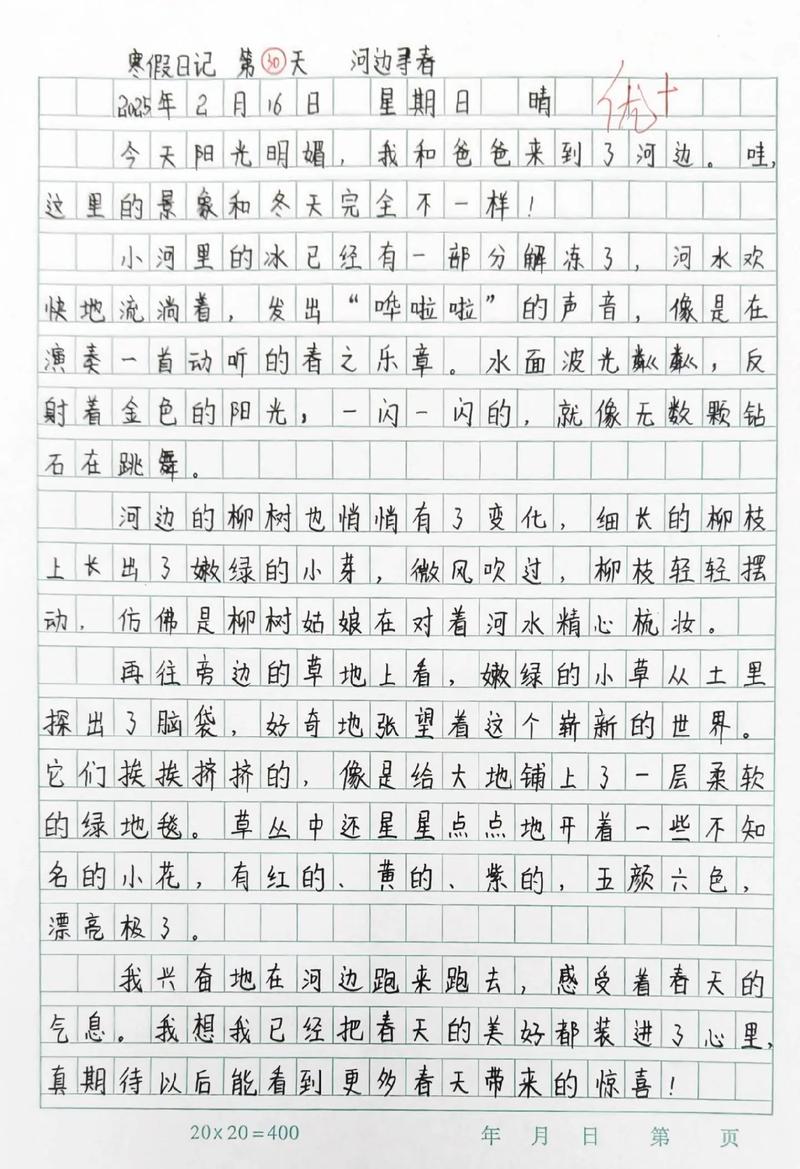 寒假日记 第30天 河边寻春
2025年2月16日 星期日 晴 优+
今天阳光明媚，我和爸爸来到了河边。哇，
这里的景象和冬天完全不一样！
小河里的冰已经有一部分解冻了，河水欢
快地流淌着，发出“哗啦啦”的声音，像是在
演奏一首动听的春之乐章。水面波光粼粼，反
射着金色的阳光，一闪一闪的，就像无数颗钻
石在跳舞。
河边的柳树也悄悄有了变化，细长的柳枝
上长出了嫩绿的小芽，微风吹过，柳枝轻轻摆
动，仿佛是柳树姑娘在对着河水精心梳妆。
再往旁边的草地上看，嫩绿的小草从土里
探出了脑袋，好奇地张望着这个崭新的世界。
它们挨挨挤挤的，像是给大地铺上了一层柔软
的绿地毯。草丛中还星星点点地开着一些不知
名的小花，有红的、黄的、紫的，五颜六色，
漂亮极了。
我兴奋地在河边跑来跑去，感受着春天的
气息。我想我已经把春天的美好都装进了心里，
真期待以后能看到更多春天带来的惊喜！
20×20=400 年 月 日 第 页